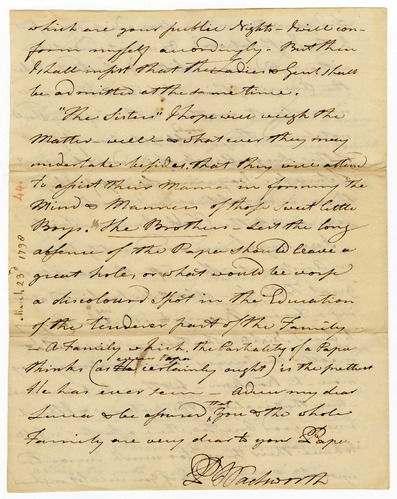 which are your public Nights - I will con-
form myself accordingly - But then
I shall insist that the Ladies & Gent shall
be admitted at the same time.
"The Sisters" I hope will weigh the
Matter - well - & what ever they may
undertake besides, that they will attend
to assist their Mamma in forming the
Mind & Manners of those Sweet little
Boys. "The Brothers - Lest the long
absence of the Papa should leave a
great hole, or what would be worse
a discoloured Spot in the Education
of the tenderer part of the Family -
- A Family which, the Partiality of a Papa
thinks (as every Papa certainly ought) is the prettiest
He has ever seen - Adieu my dear
& be assured, that You & the whole
Family are very dear to your Papa.
P Wadsworth
March 23d 1798
44